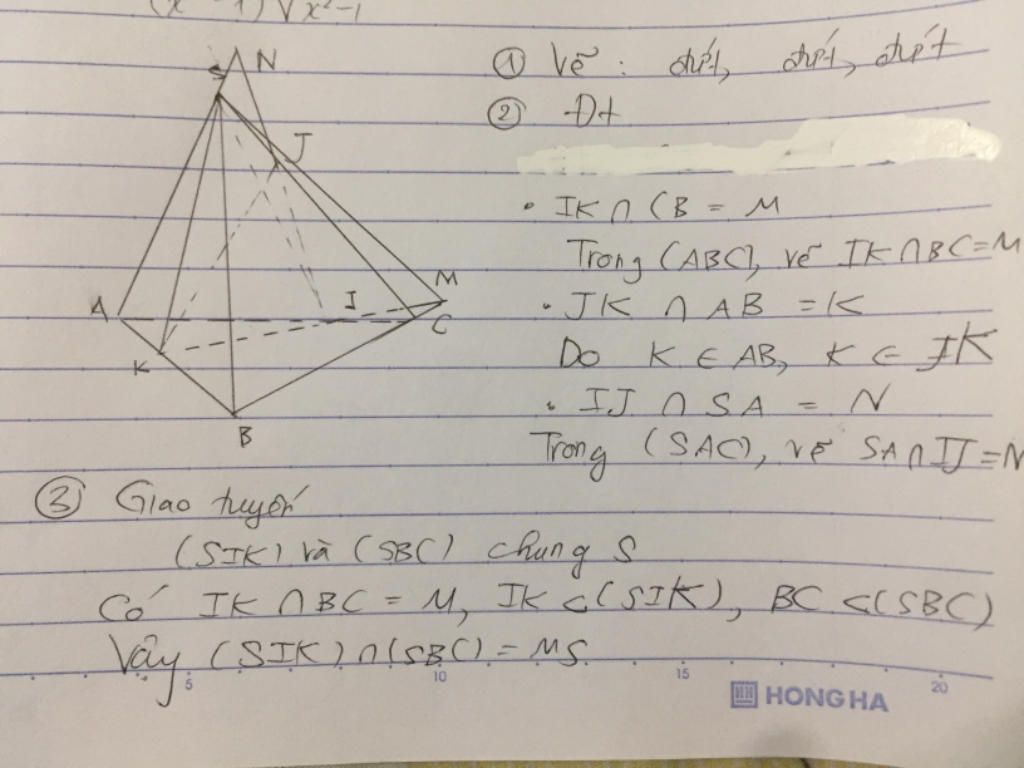 √x²-1
S N
J
A
I
M
C
K
B
① Vẽ : đứt, đứt, đứt
② Đt
• IK ∩ CB = M
Trong (ABC), vẽ IK ∩ BC = M
• JK ∩ AB = K
Do K ∈ AB, K ∈ JK
• IJ ∩ SA = N
Trong (SAC), vẽ SA ∩ IJ = N
③ Giao tuyến
(SIK) và (SBC) chung S
Có IK ∩ BC = M, IK ⊂ (SIK), BC ⊂ (SBC)
Vậy (SIK) ∩ (SBC) = MS.
5 10 15 20
HONG HA